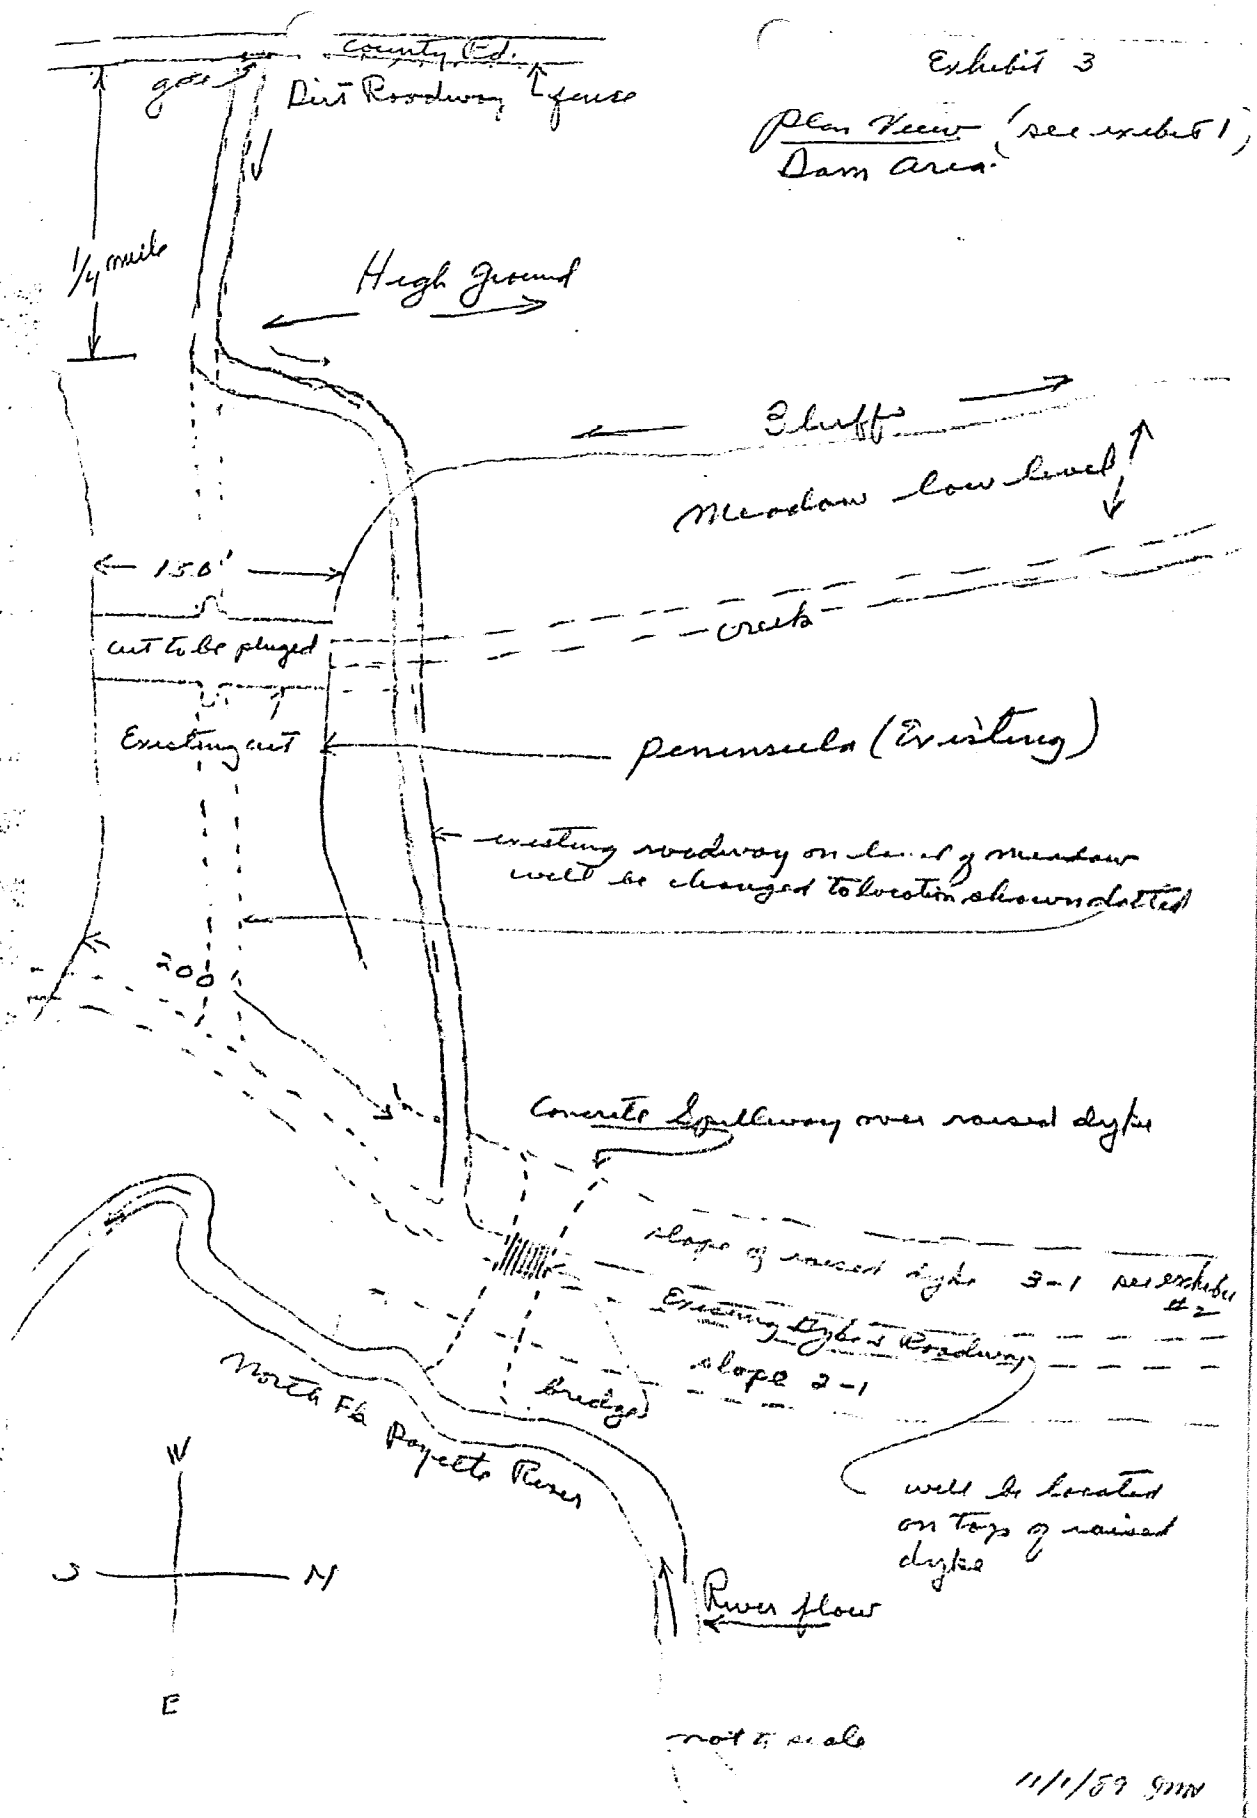 County Rd.
Exhibit 3
gate
Dirt Roadway
fense
Plan View (see exhibit 1)
Dam Area.
1/4 mile
High ground
Bluffs
Meadow low level
150'
creek
cut to be pluged
Existing cut
peninsula (Existing)
existing roadway on land of meadow
will be changed to location shown dotted
200
Concrete Spillway over raised dyke
slope of raised dyke 3-1 see exhibit
#2
Existing Dyke & Roadway
slope 2-1
bridge
North Fk Payette River
will be located
on top of raised
dyke
W
S
N
E
River flow
not to scale
11/1/89